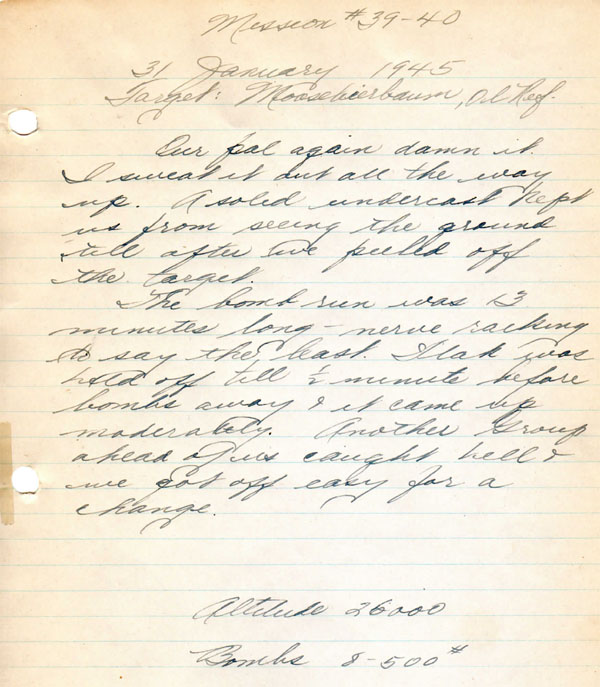 Mission #39-40
31 January 1945
Target: Moosebierbaum, Oil Ref.
Our pal again damn it.
I sweat it out all the way
up. A solid undercast kept
us from seeing the ground
till after we peeled off
the target.
The bomb run was 13
minutes long - nerve racking
to say the least. Flak was
held off till ½ minute before
bombs away & it came up
moderately. Another Group
ahead of us caught hell &
we got off easy for a
change.
Altitude 26000
Bombs 8-500#